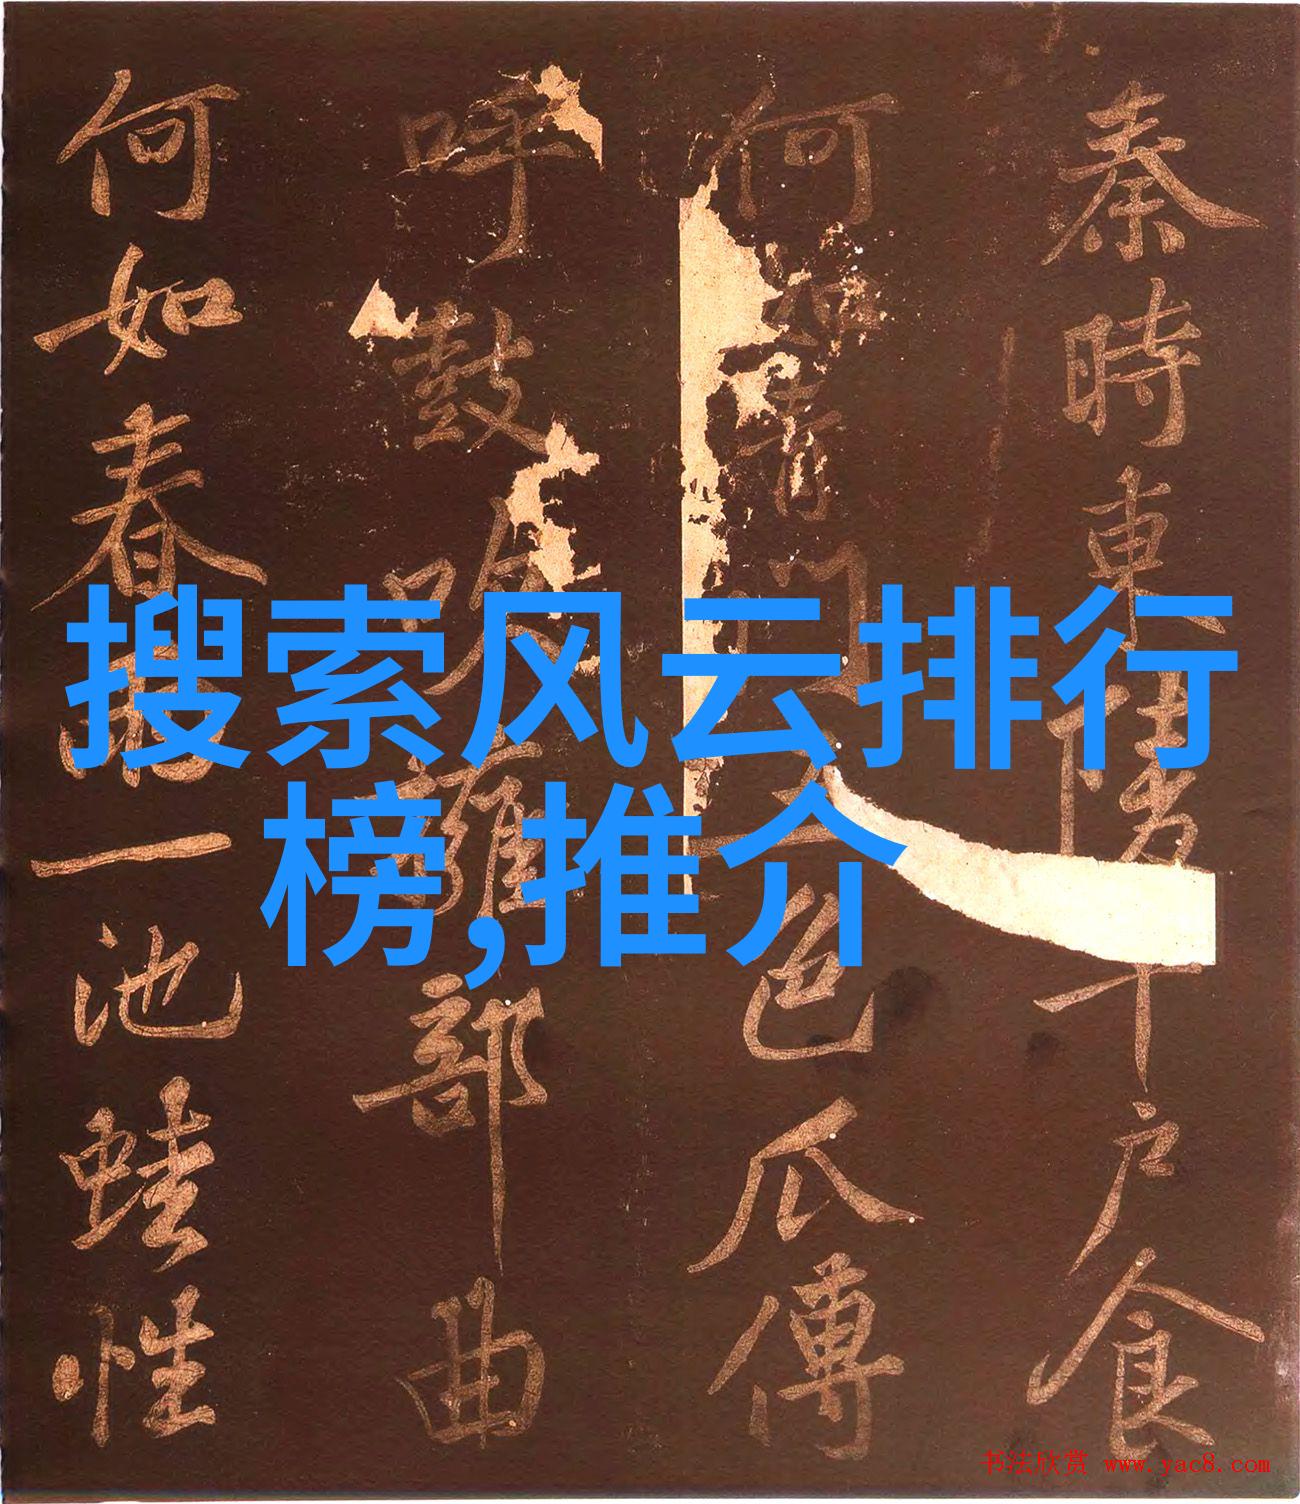 秦時東陵千户食
何如青門五色瓜傳
呼鼓吹雍部曲
何如春雨一池蛙性
搜索风云排行
榜,推介
书法欣赏 www.yac8.com